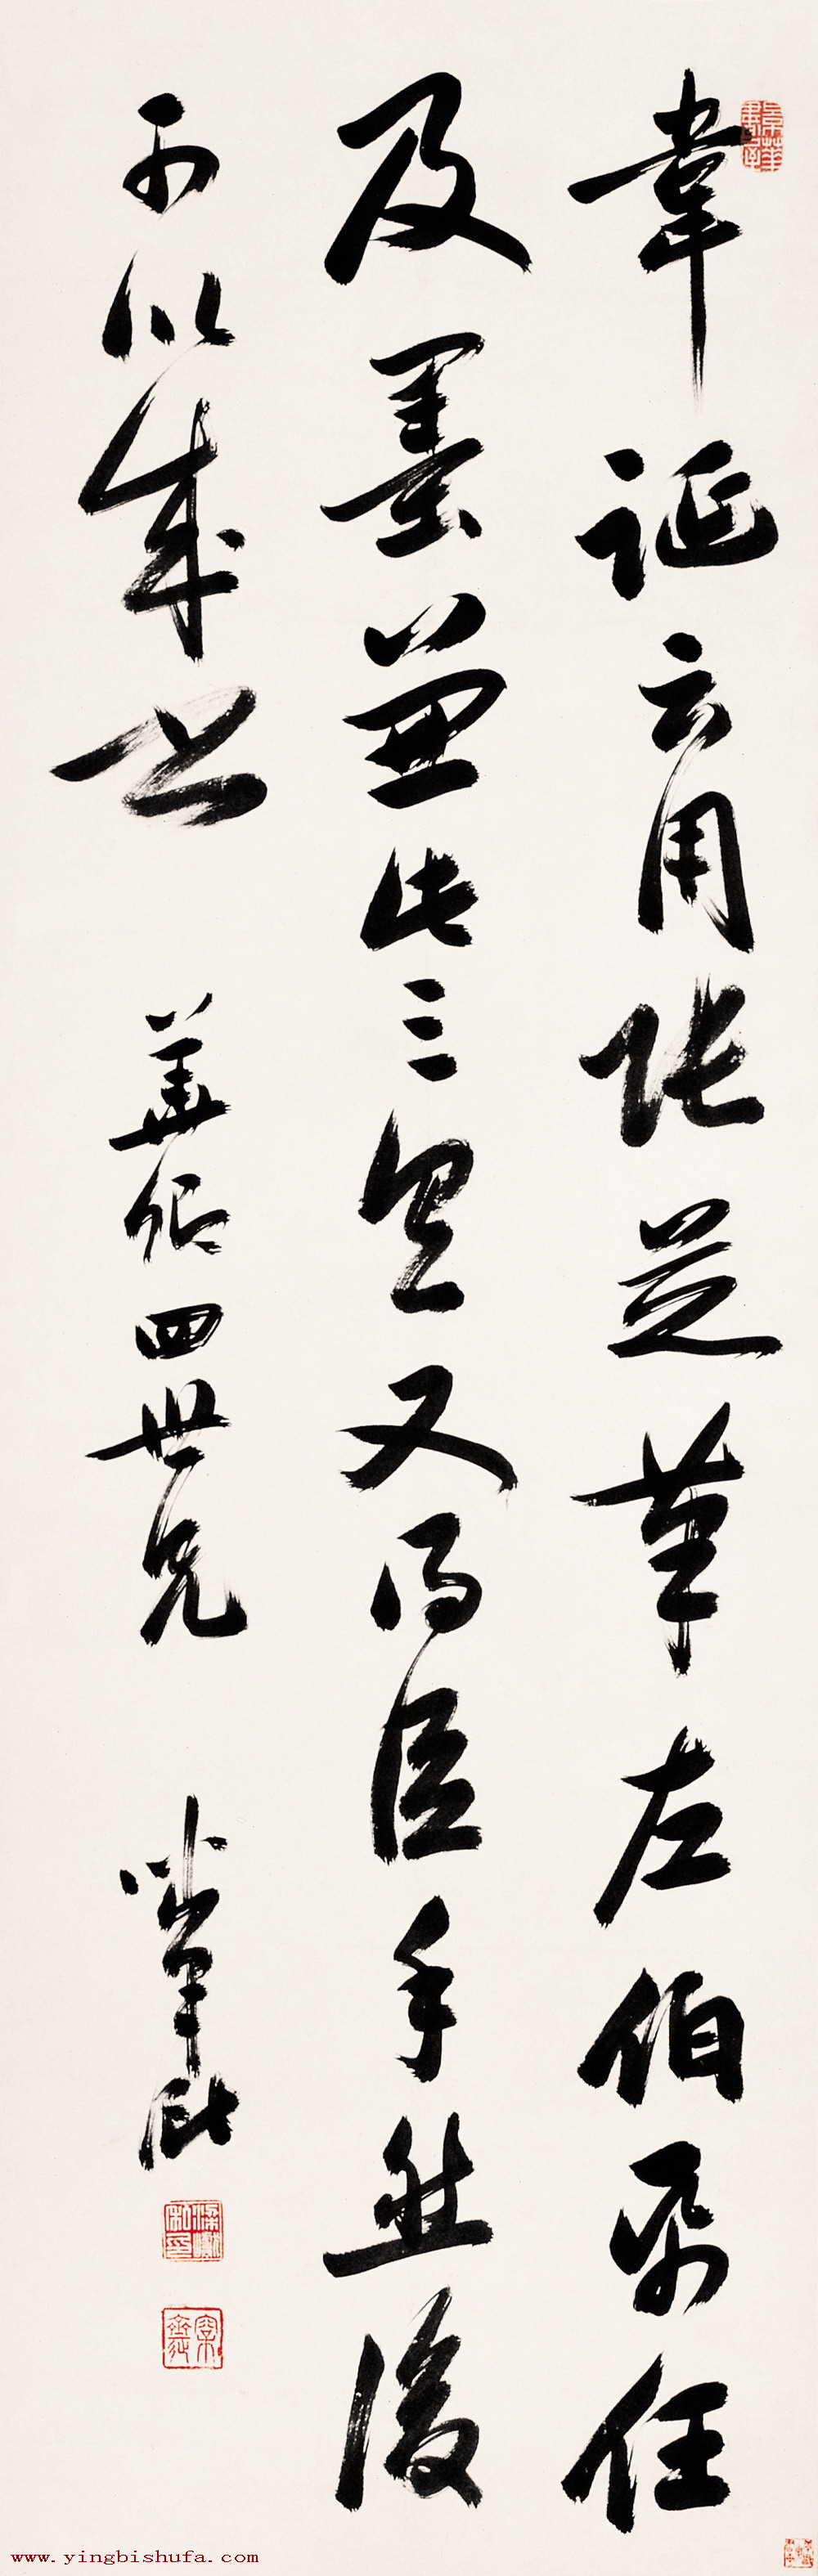 韋誕云用張芝筆左伯紙任
及墨兼此三具又得臣手然後
可以成也 華卿四世兄 
www.yingbishufa.com